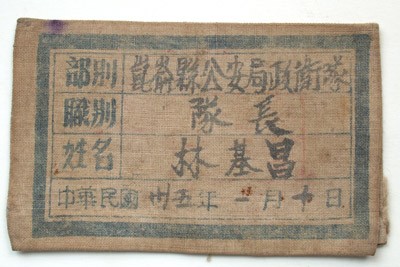 部別 崑嵛縣公安局政衛隊
職別 隊長
姓名 林基昌
中華民國 卅五年 月十日